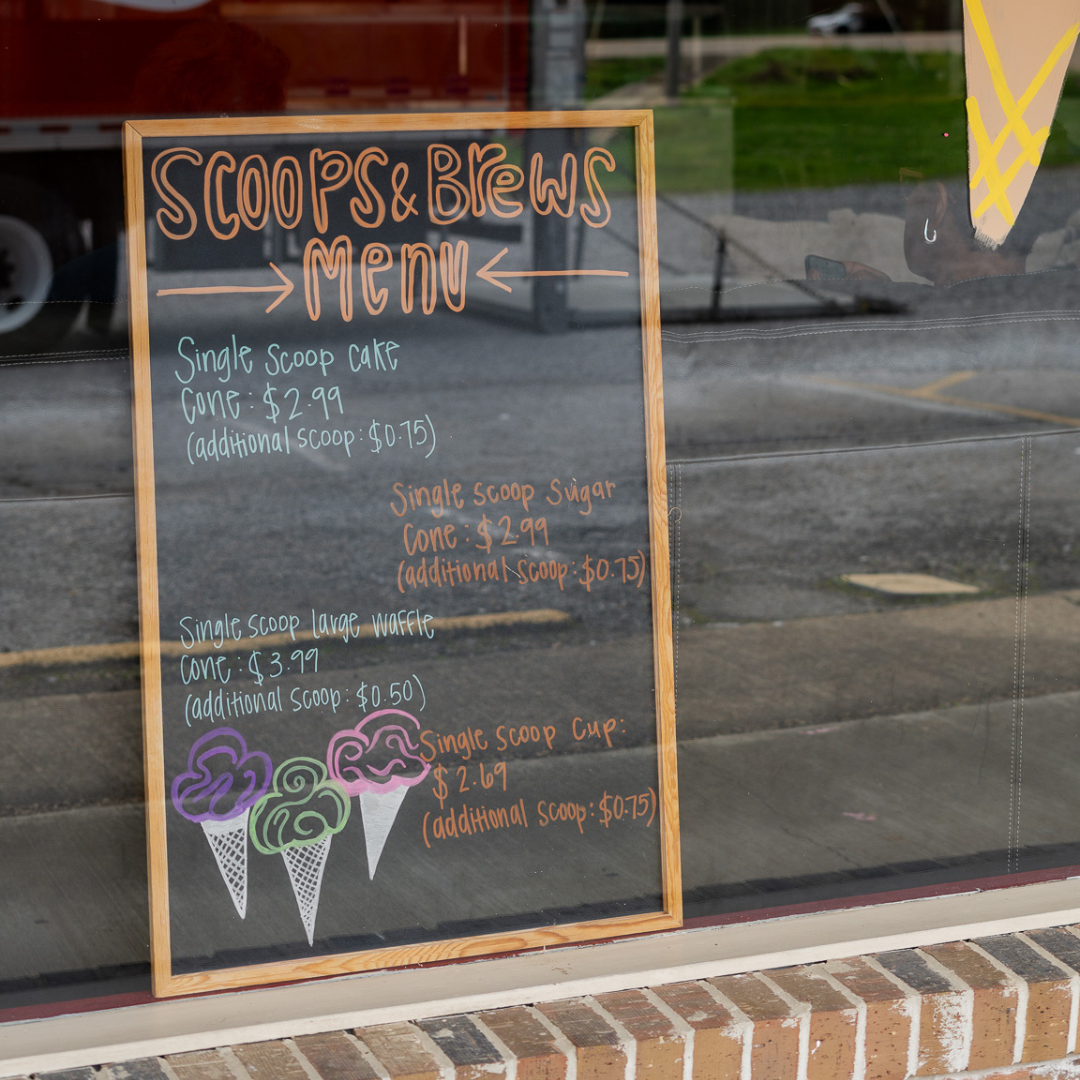 Scoops & Brews
Menu
Single Scoop cake
Cone: $2.99
(additional scoop: $0.75)
Single scoop Sugar
Cone: $2.99
(additional scoop: $0.75)
Single scoop large waffle
Cone: $3.99
(additional scoop: $0.50)
Single scoop Cup:
$2.69
(additional scoop: $0.75)